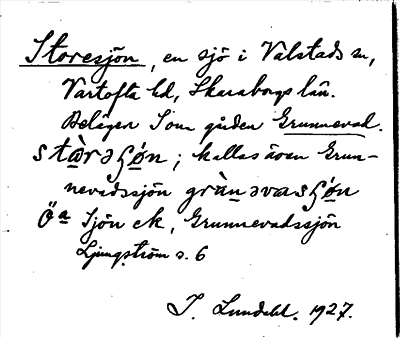 Storesjön, en sjö i Valstads sn,
Vartofta hd, Skaraborgs län.
Belägen S om gården Grunnevad.
stòrəʃø̀n; kallas även Grun-
nevadssjön grànəvasʃø̀n
Öa Sjön ek, Grunnevadssjön
Ljungström s. 6
J. Lundahl. 1927.